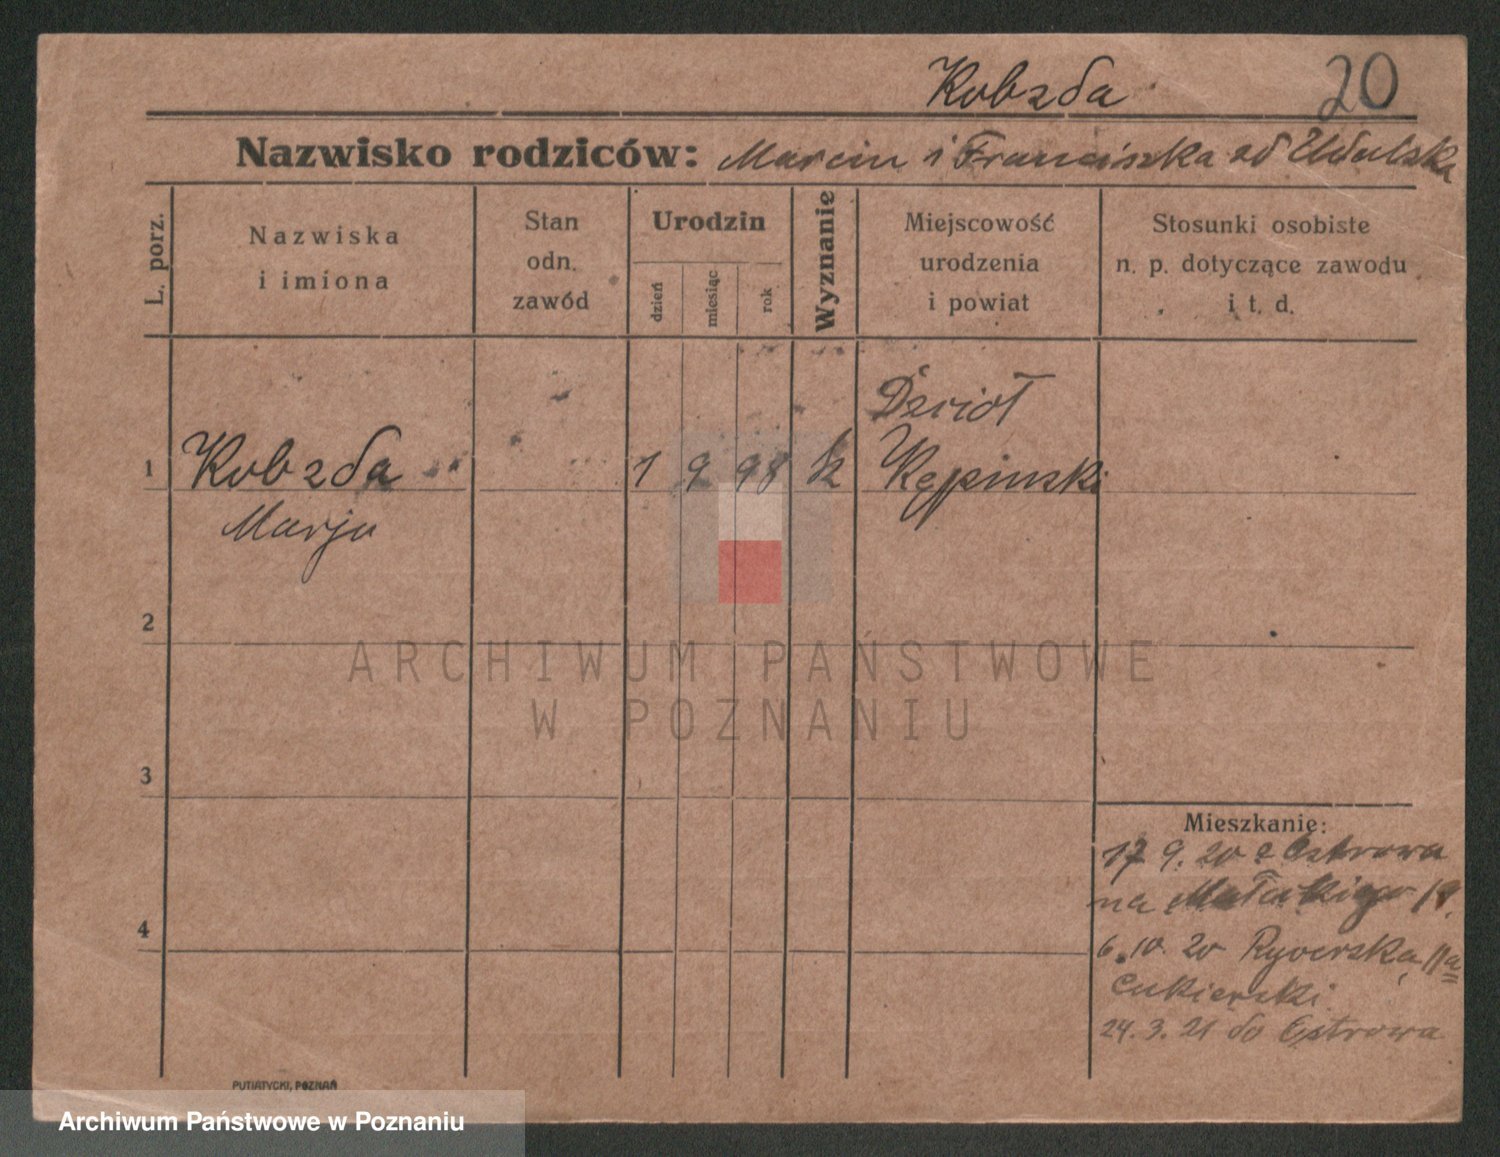 Kobzda 20
Nazwisko rodziców: Marcin i Franciszka zd
L. porz.
Nazwiska
i imiona
Stan
odn.
zawód
Urodzin
dzień
miesiąc
rok
Wyznanie
Miejscowość
urodzenia
i powiat
Stosunki osobiste
n. p. dotyczące zawodu
i t. d.
1 Kobzda 1 9 98 k
Marja
Kępiński
2
3
4
ARCHIWUM PAŃSTWOWE
W POZNANIU
Mieszkanie:
17 9. 20 z Ostrowa
na 18.
6.10. 20 Rycerska 11a
Cukierski
24. 3. 21 do Ostrowa
PUTIATYCKI, POZNAŃ
Archiwum Państwowe w Poznaniu